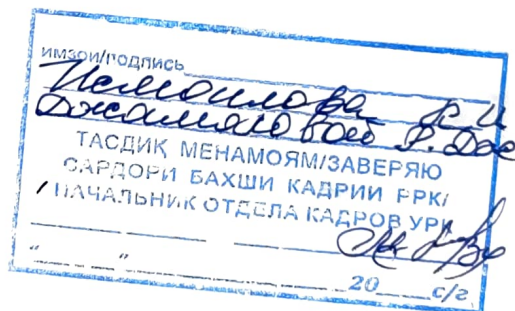 ИМЗОИ/ПОДПИСЬ
Исмаилова К И
Джамаловой Р.
ТАСДИҚ МЕНАМОЯМ/ЗАВЕРЯЮ
САРДОРИ БАХШИ КАДРИИ РРК/
НАЧАЛЬНИК ОТДЕЛА КАДРОВ УРК
“ ” 20 с/г